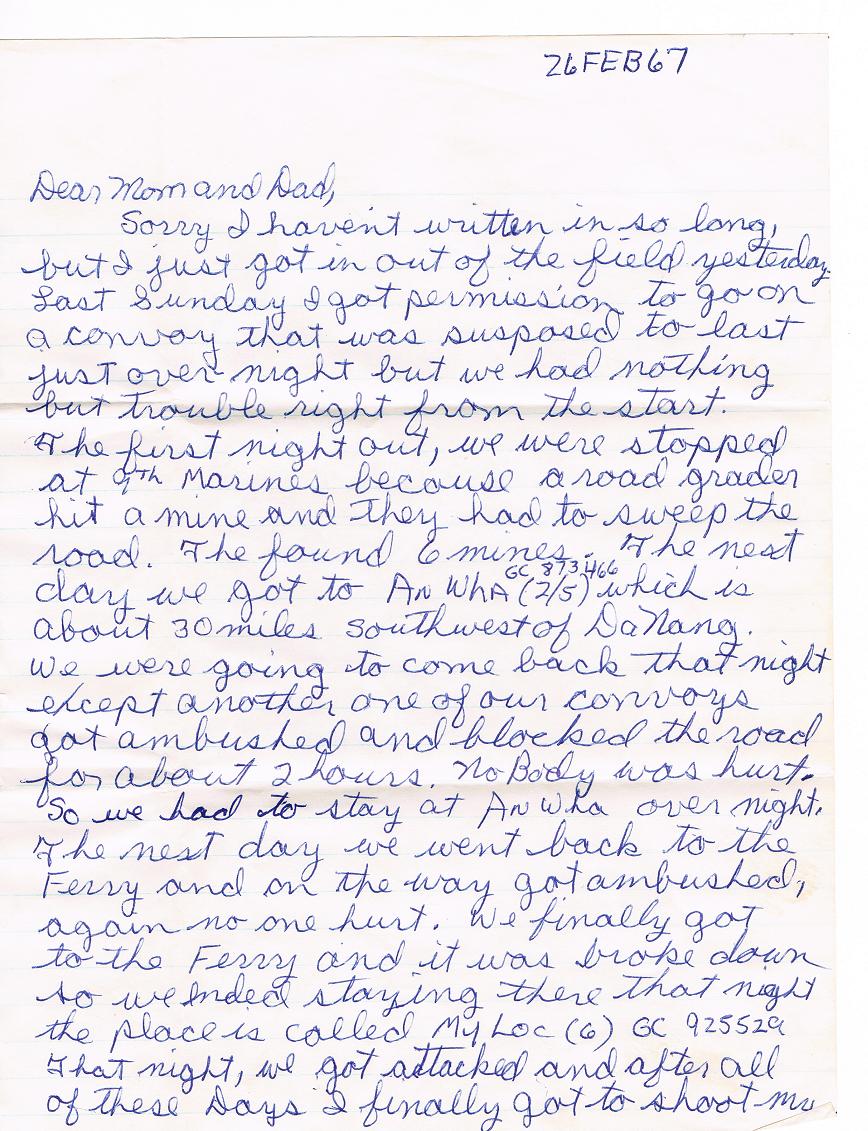 26FEB67
Dear Mom and Dad,
Sorry I haven't written in so long,
but I just got in out of the field yesterday.
Last Sunday I got permission to go on
a convoy that was susposed to last
just over night but we had nothing
but trouble right from the start.
The first night out, we were stopped
at 9th Marines becouse a road grader
hit a mine and they had to sweep the
road. The found 6 mines. The nest
GC 873466
day we got to An Wha (2/5) which is
about 30 miles southwest of DaNang.
We were going to come back that night
except another one of our convoys
got ambushed and blocked the road
for about 2 hours. NoBody was hurt.
So we had to stay at An Wha over night.
The nest day we went back to the
Ferry and on the way got ambushed,
again no one hurt. We finally got
to the Ferry and it was broke down
so we ended staying there that night
the place is called My Loc (6) GC 925529
That night, we got attacked and after all
of these Days I finally got to shoot my